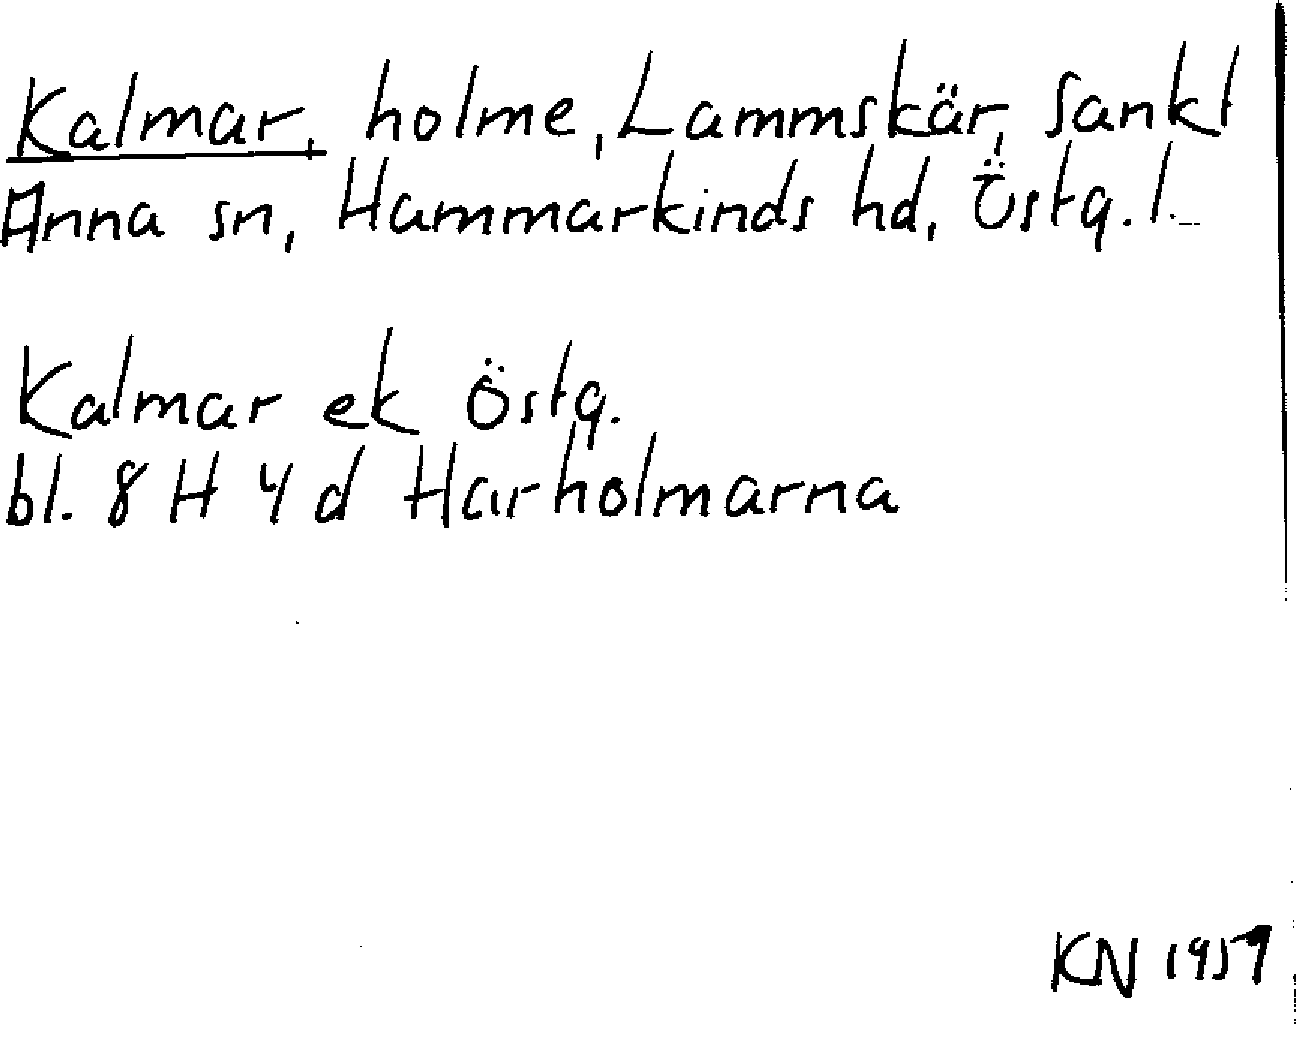 Kalmar, holme, Lammskär, Sankt
Anna sn, Hammarkinds hd, Östg. l.
Kalmar ek Östg.
bl. 8 H 4 d Harholmarna
KN 1957